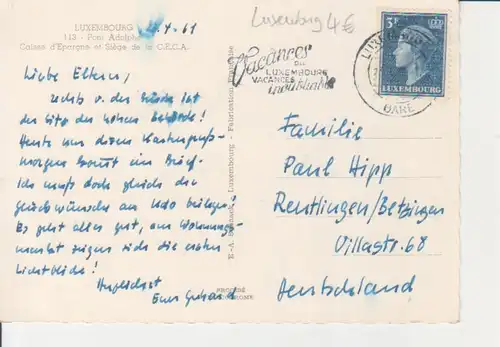 LUXEMBOURG
113 - Pont Adolphe
Caisse d'Epargne et Siège de la C.E.C.A.
4.61
Luxemburg 4€
Vacances
AU
LUXEMBOURG
VACANCES
inoubliables
3F
LUXEMBOURG
GARE
Liebe Eltern,
rechts v. der Brücke ist
der Sitz der hohen Behörde!
Heute nur diesen Kartengruß-
morgen kommt ein Brief.
Ich muß doch gleich die
Glückwünsche an Udo beilegen!
Es geht alles gut, am Wohnungs-
markt zeigen sich die ersten
Lichtblicke!
Herzlichst
Euer Gerhard
Luxembourg - Fabrication
PROCÉDÉ
Familie
Paul Hipp
Reutlingen/Betzingen
Villastr. 68
Deutschland